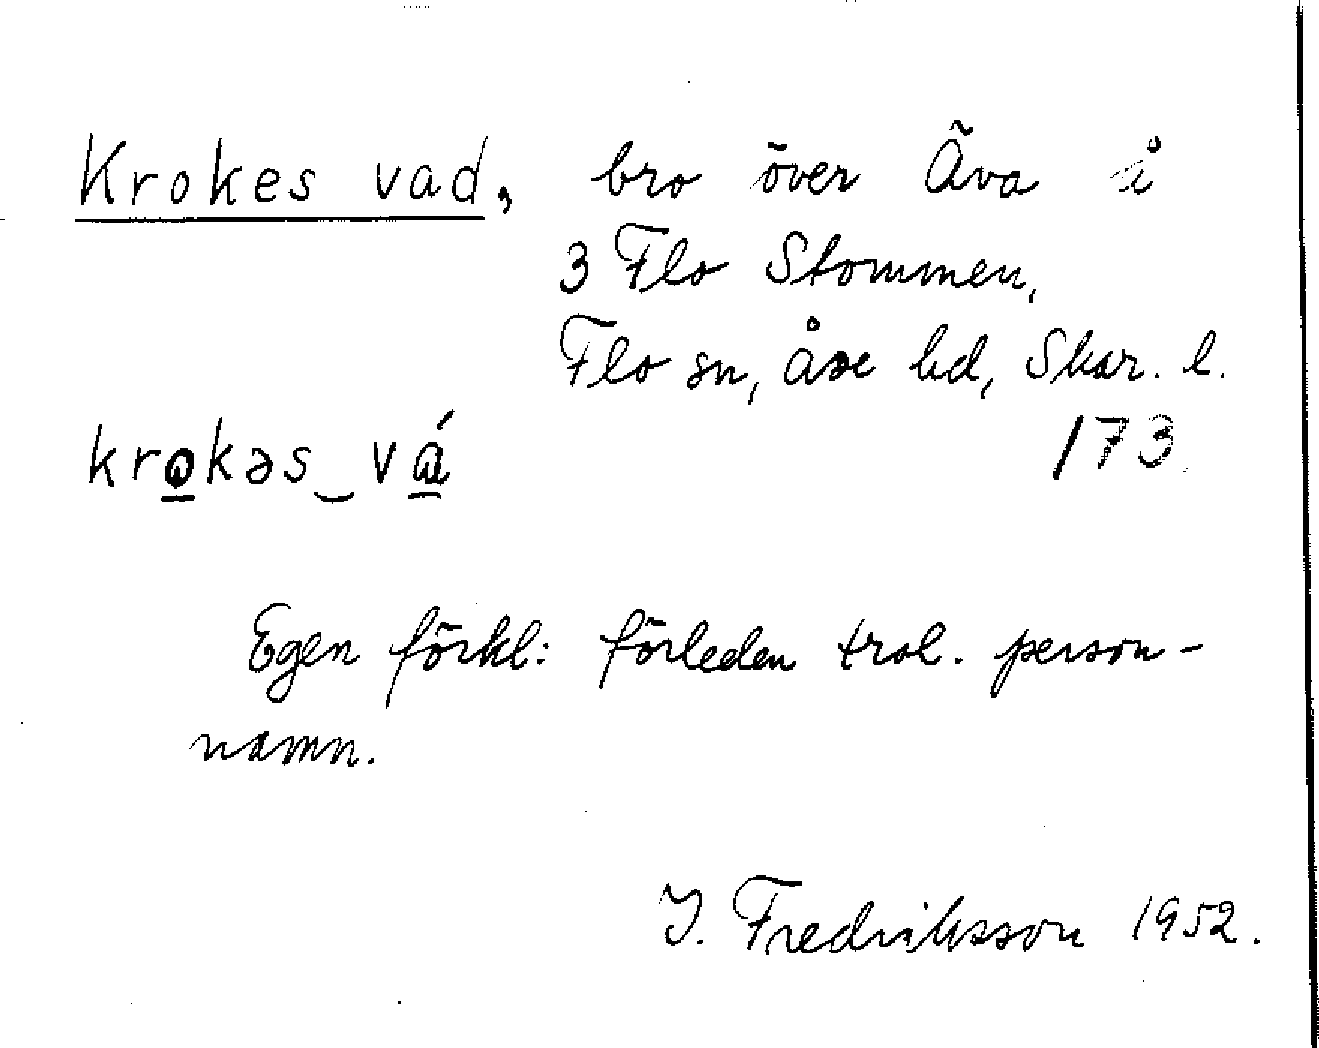 Krokes vad, bro över Äva i
3 Flo Stommen,
Flo sn, Åse hd, Skar. l.
173
krokəs‿vá
Egen förkl: förleden trol. person-
namn.
I. Fredriksson 1952.